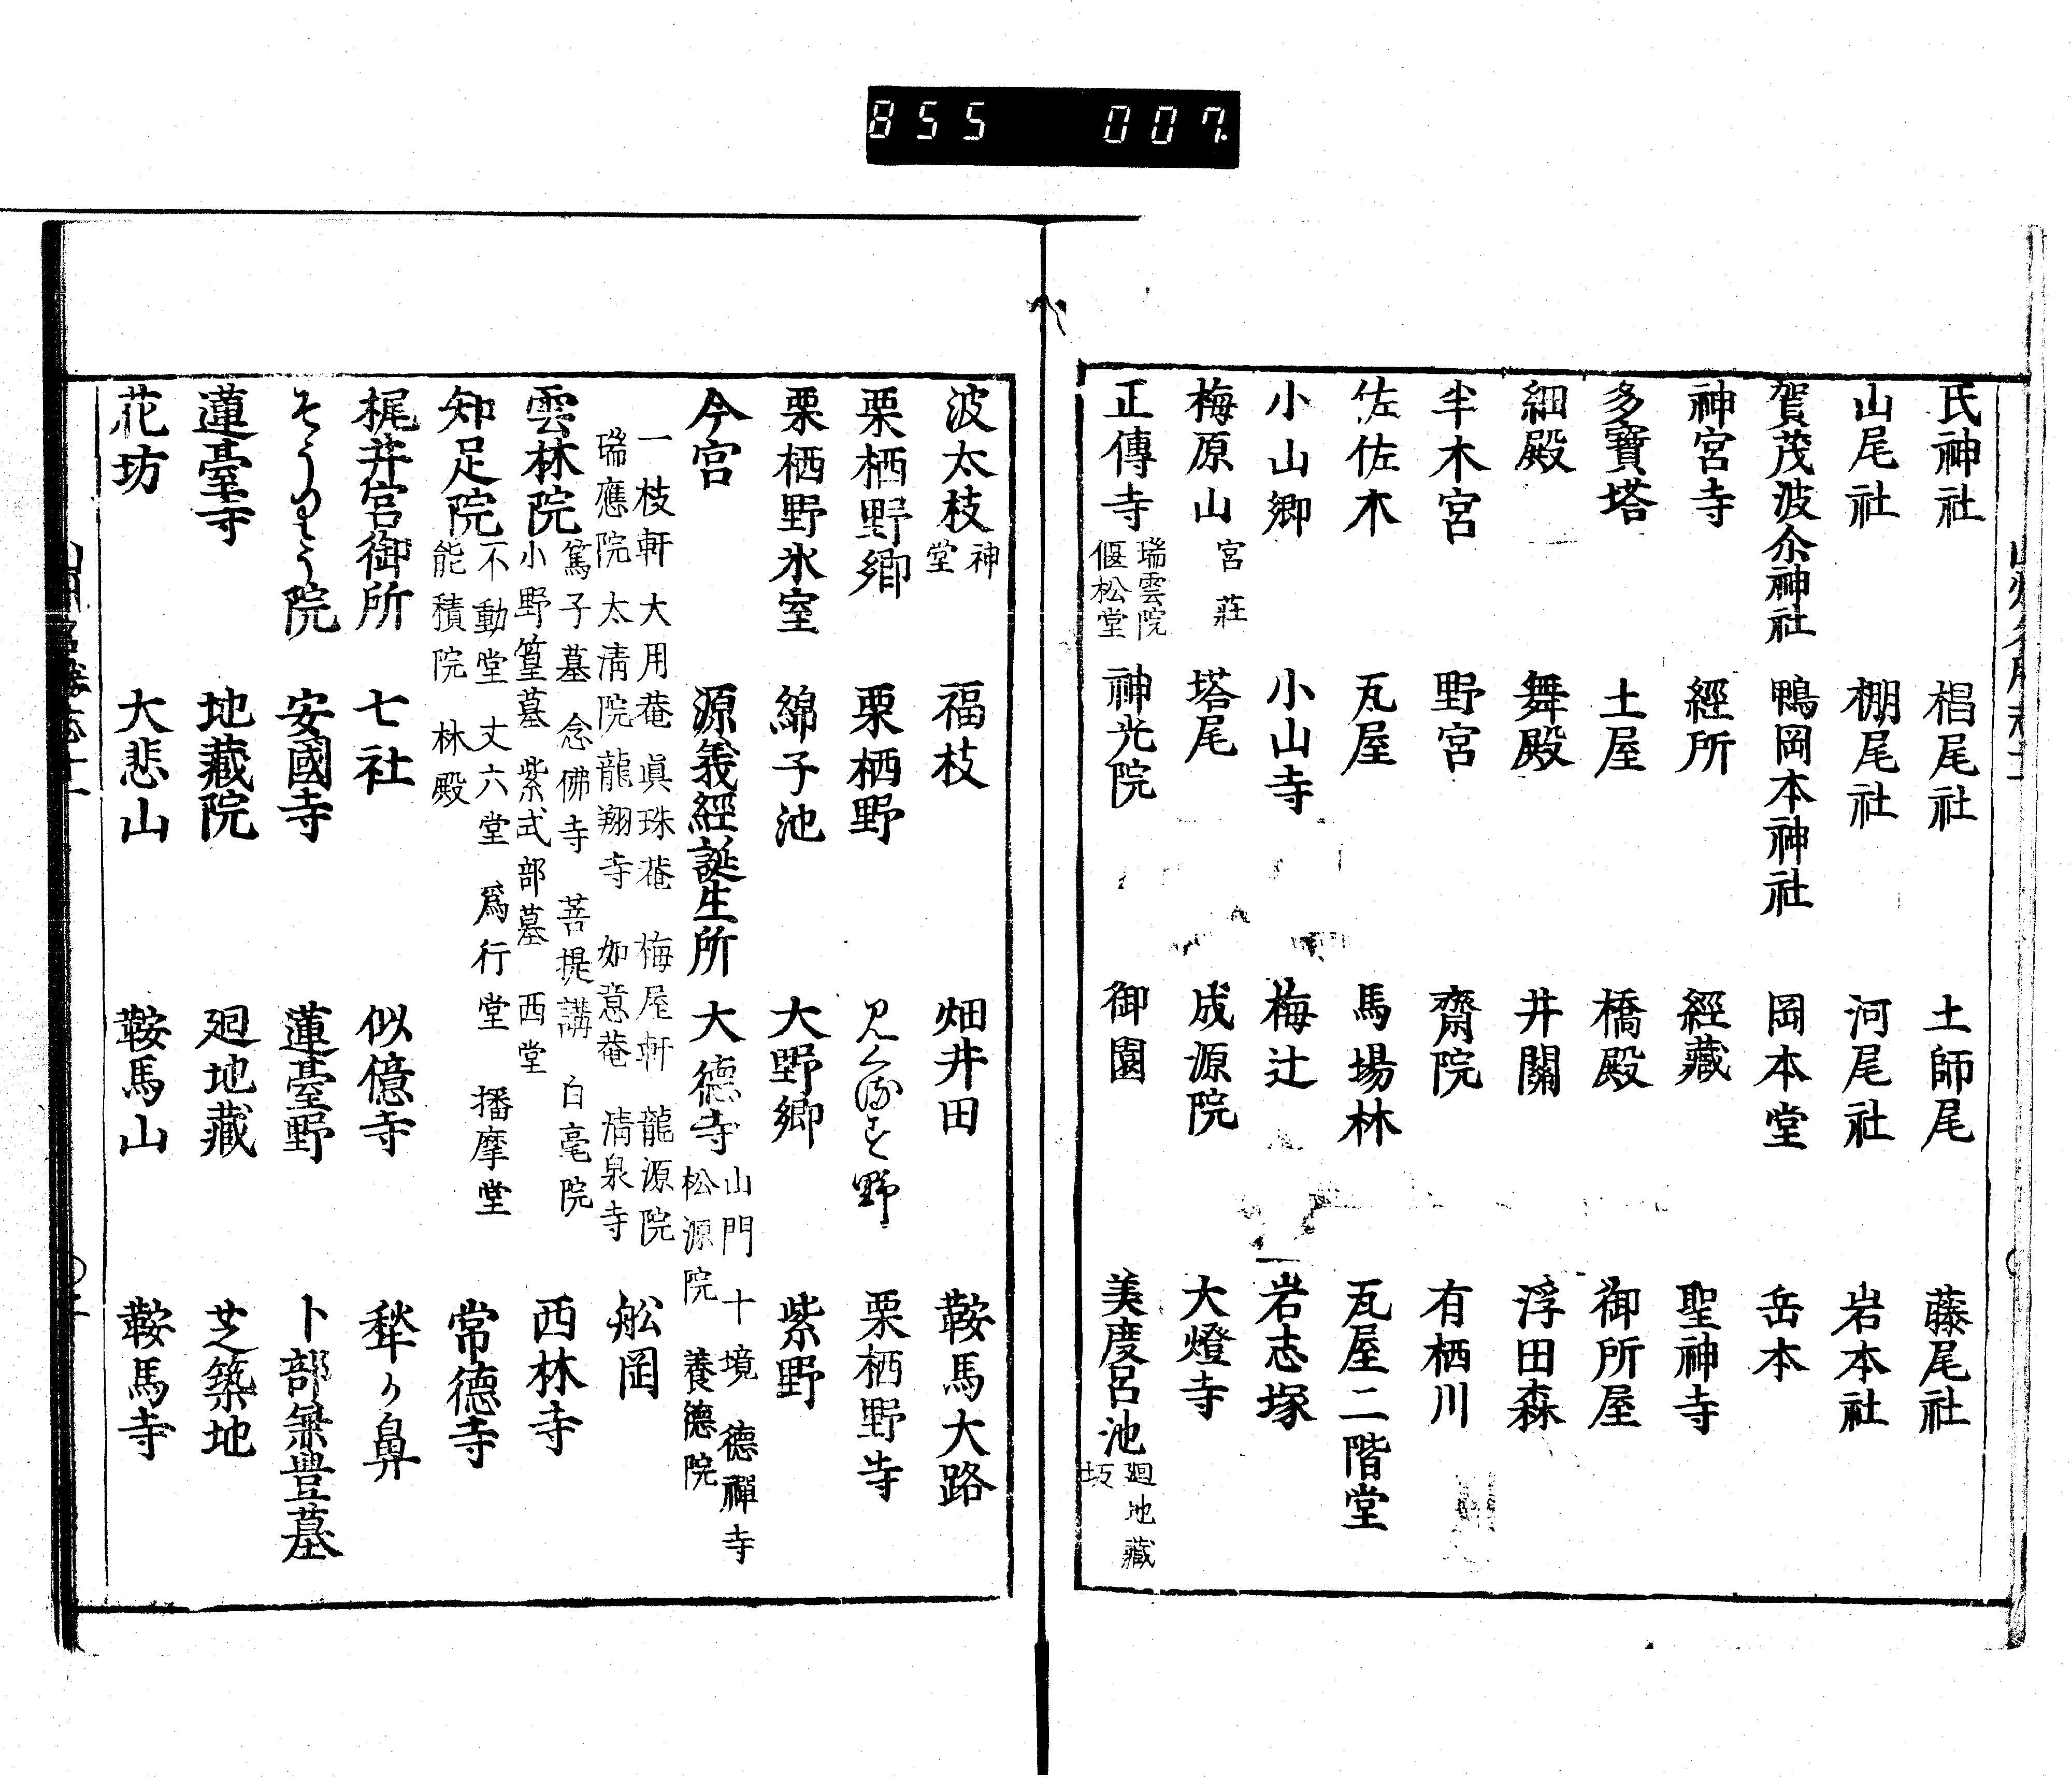 855 007
氏神社 椙尾社 土師尾 藤尾社
山尾社 棚尾社 河尾社 岩本社
賀茂波尒神社 鴨岡本神社 岡本堂 岳本
神宮寺 經所 經藏 聖神寺
多寶塔 土屋 橋殿 御所屋
細殿 舞殿 井關 浮田森
半木宮 野宮 齋院 有栖川
佐佐木 瓦屋 馬場林 瓦屋二階堂
小山郷 小山寺 梅辻 岩志塚
梅原山 宮莊 塔尾 成源院 大燈寺
正傳寺 瑞雲院 偃松堂 神光院 御園 美度呂池 廻地藏 坂
波太枝 神堂 福枝 畑井田 鞍馬大路
栗栖野郷 栗栖野 野 栗栖野寺
栗栖野氷室 綿子池 大野郷 紫野
今宮 源義經誕生所 大德寺 山門 十境 德禪寺 松源院 養德院
一枝軒 大用菴 眞珠菴 梅屋軒 龍源院
瑞應院 太清院 龍翔寺 如意菴 清泉寺 舩岡
雲林院 篤子墓 念佛寺 菩提講 白毫院 小野篁墓 紫式部墓 西堂 西林寺
知足院 不動堂 丈六堂 爲行堂 播摩堂 能積院 林殿 常德寺
梶井宮御所 七社 似億寺 犂ヶ鼻
そうりう院 安國寺 蓮臺野 卜部兼豊墓
蓮臺寺 地藏院 廻地藏 芝築地
花坊 大悲山 鞍馬山 鞍馬寺